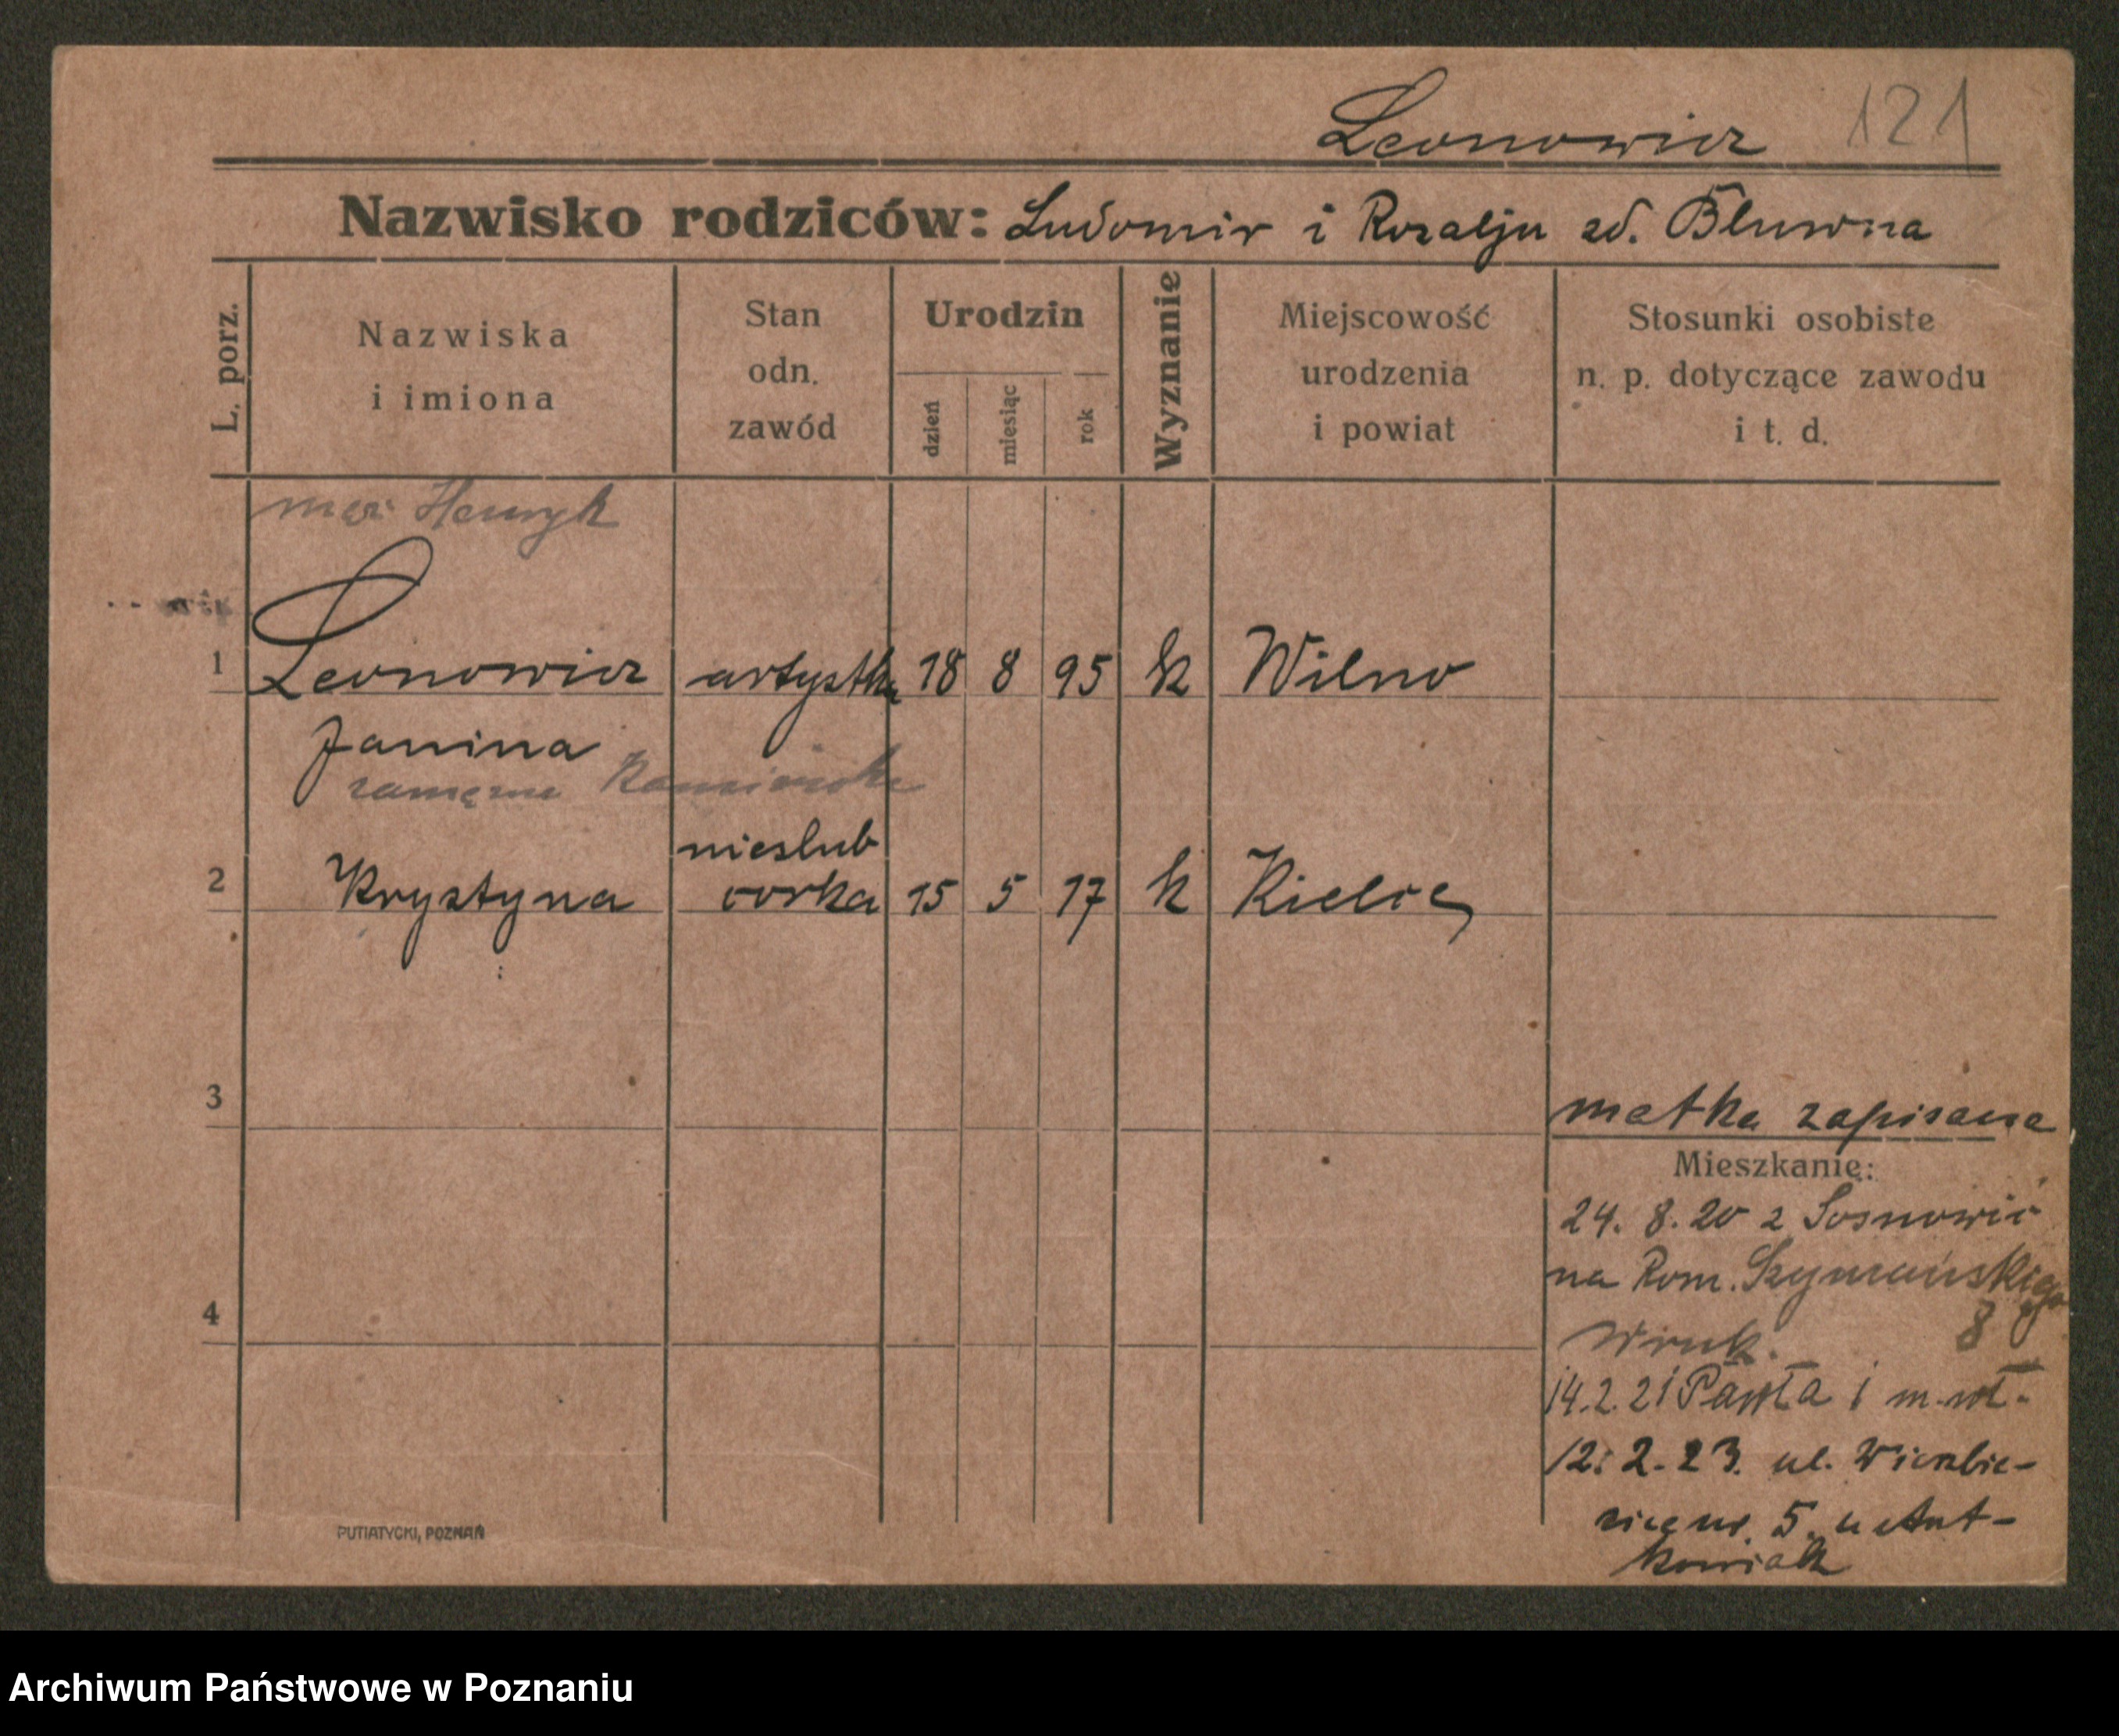 Leonowicz 121
Nazwisko rodziców: Ludomir i Rozalja zd. Bluwna
L. porz.
Nazwiska
i imiona
Stan
odn.
zawód
Urodzin
dzień
miesiąc
rok
Wyznanie
Miejscowość
urodzenia
i powiat
Stosunki osobiste
n. p. dotyczące zawodu
i t. d.
mąż Henryk
1 Leonowicz artystka 18 8 95 k Wilno
Janina
zamężna
nieślub
2 Krystyna corka 15 5 17 k Kielce
3
matka zapisana
Mieszkanie:
24. 8. 20 z Sosnowic
na Rom. Szymańskiego
8
4
Wruk.
14.2.21 Pawła i m.
12. 2. 23. ul. Wierzbie-
cice nr. 5. u Ant-
kowiak
PUTIATYCKI, POZNAŃ
Archiwum Państwowe w Poznaniu